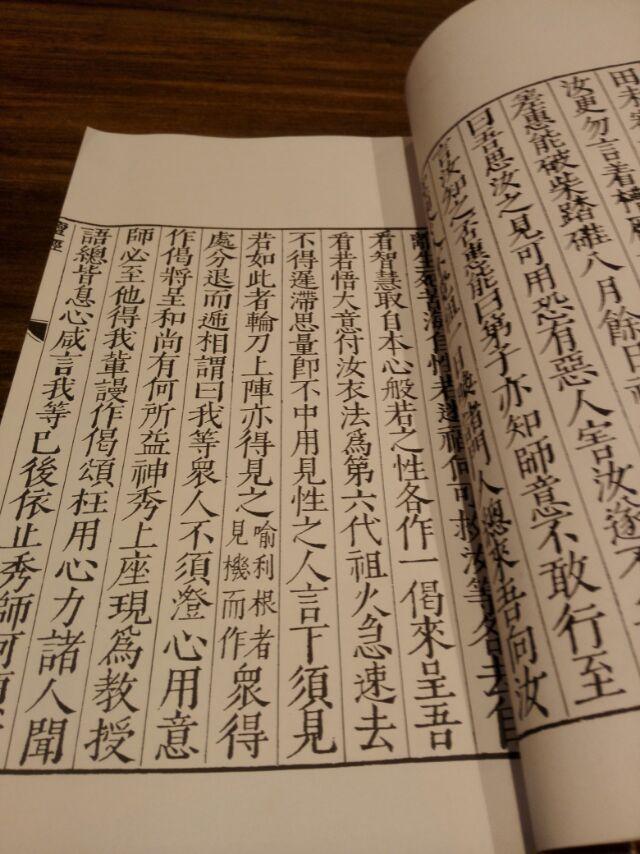 田未
汝更勿言着槽
差惠能破柴踏碓八月餘日祖
曰吾思汝之見可用恐有惡人害汝遂不
言汝知之否惠能曰弟子亦知師意不敢行至
祖一日喚諸門人總來吾向汝
離生死苦海自性若迷福何可救汝等各去自
看智慧取自本心般若之性各作一偈來呈吾
看若悟大意付汝衣法爲第六代祖火急速去
不得遲滯思量卽不中用見性之人言下須見
若如此者輪刀上陣亦得見之喻利根者見機而作衆得
處分退而遞相謂曰我等衆人不須澄心用意
作偈將呈和尚有何所益神秀上座現爲教授
師必至他得我輩謾作偈頌枉用心力諸人聞
語總皆息心咸言我等已後依止秀師何煩
壇經